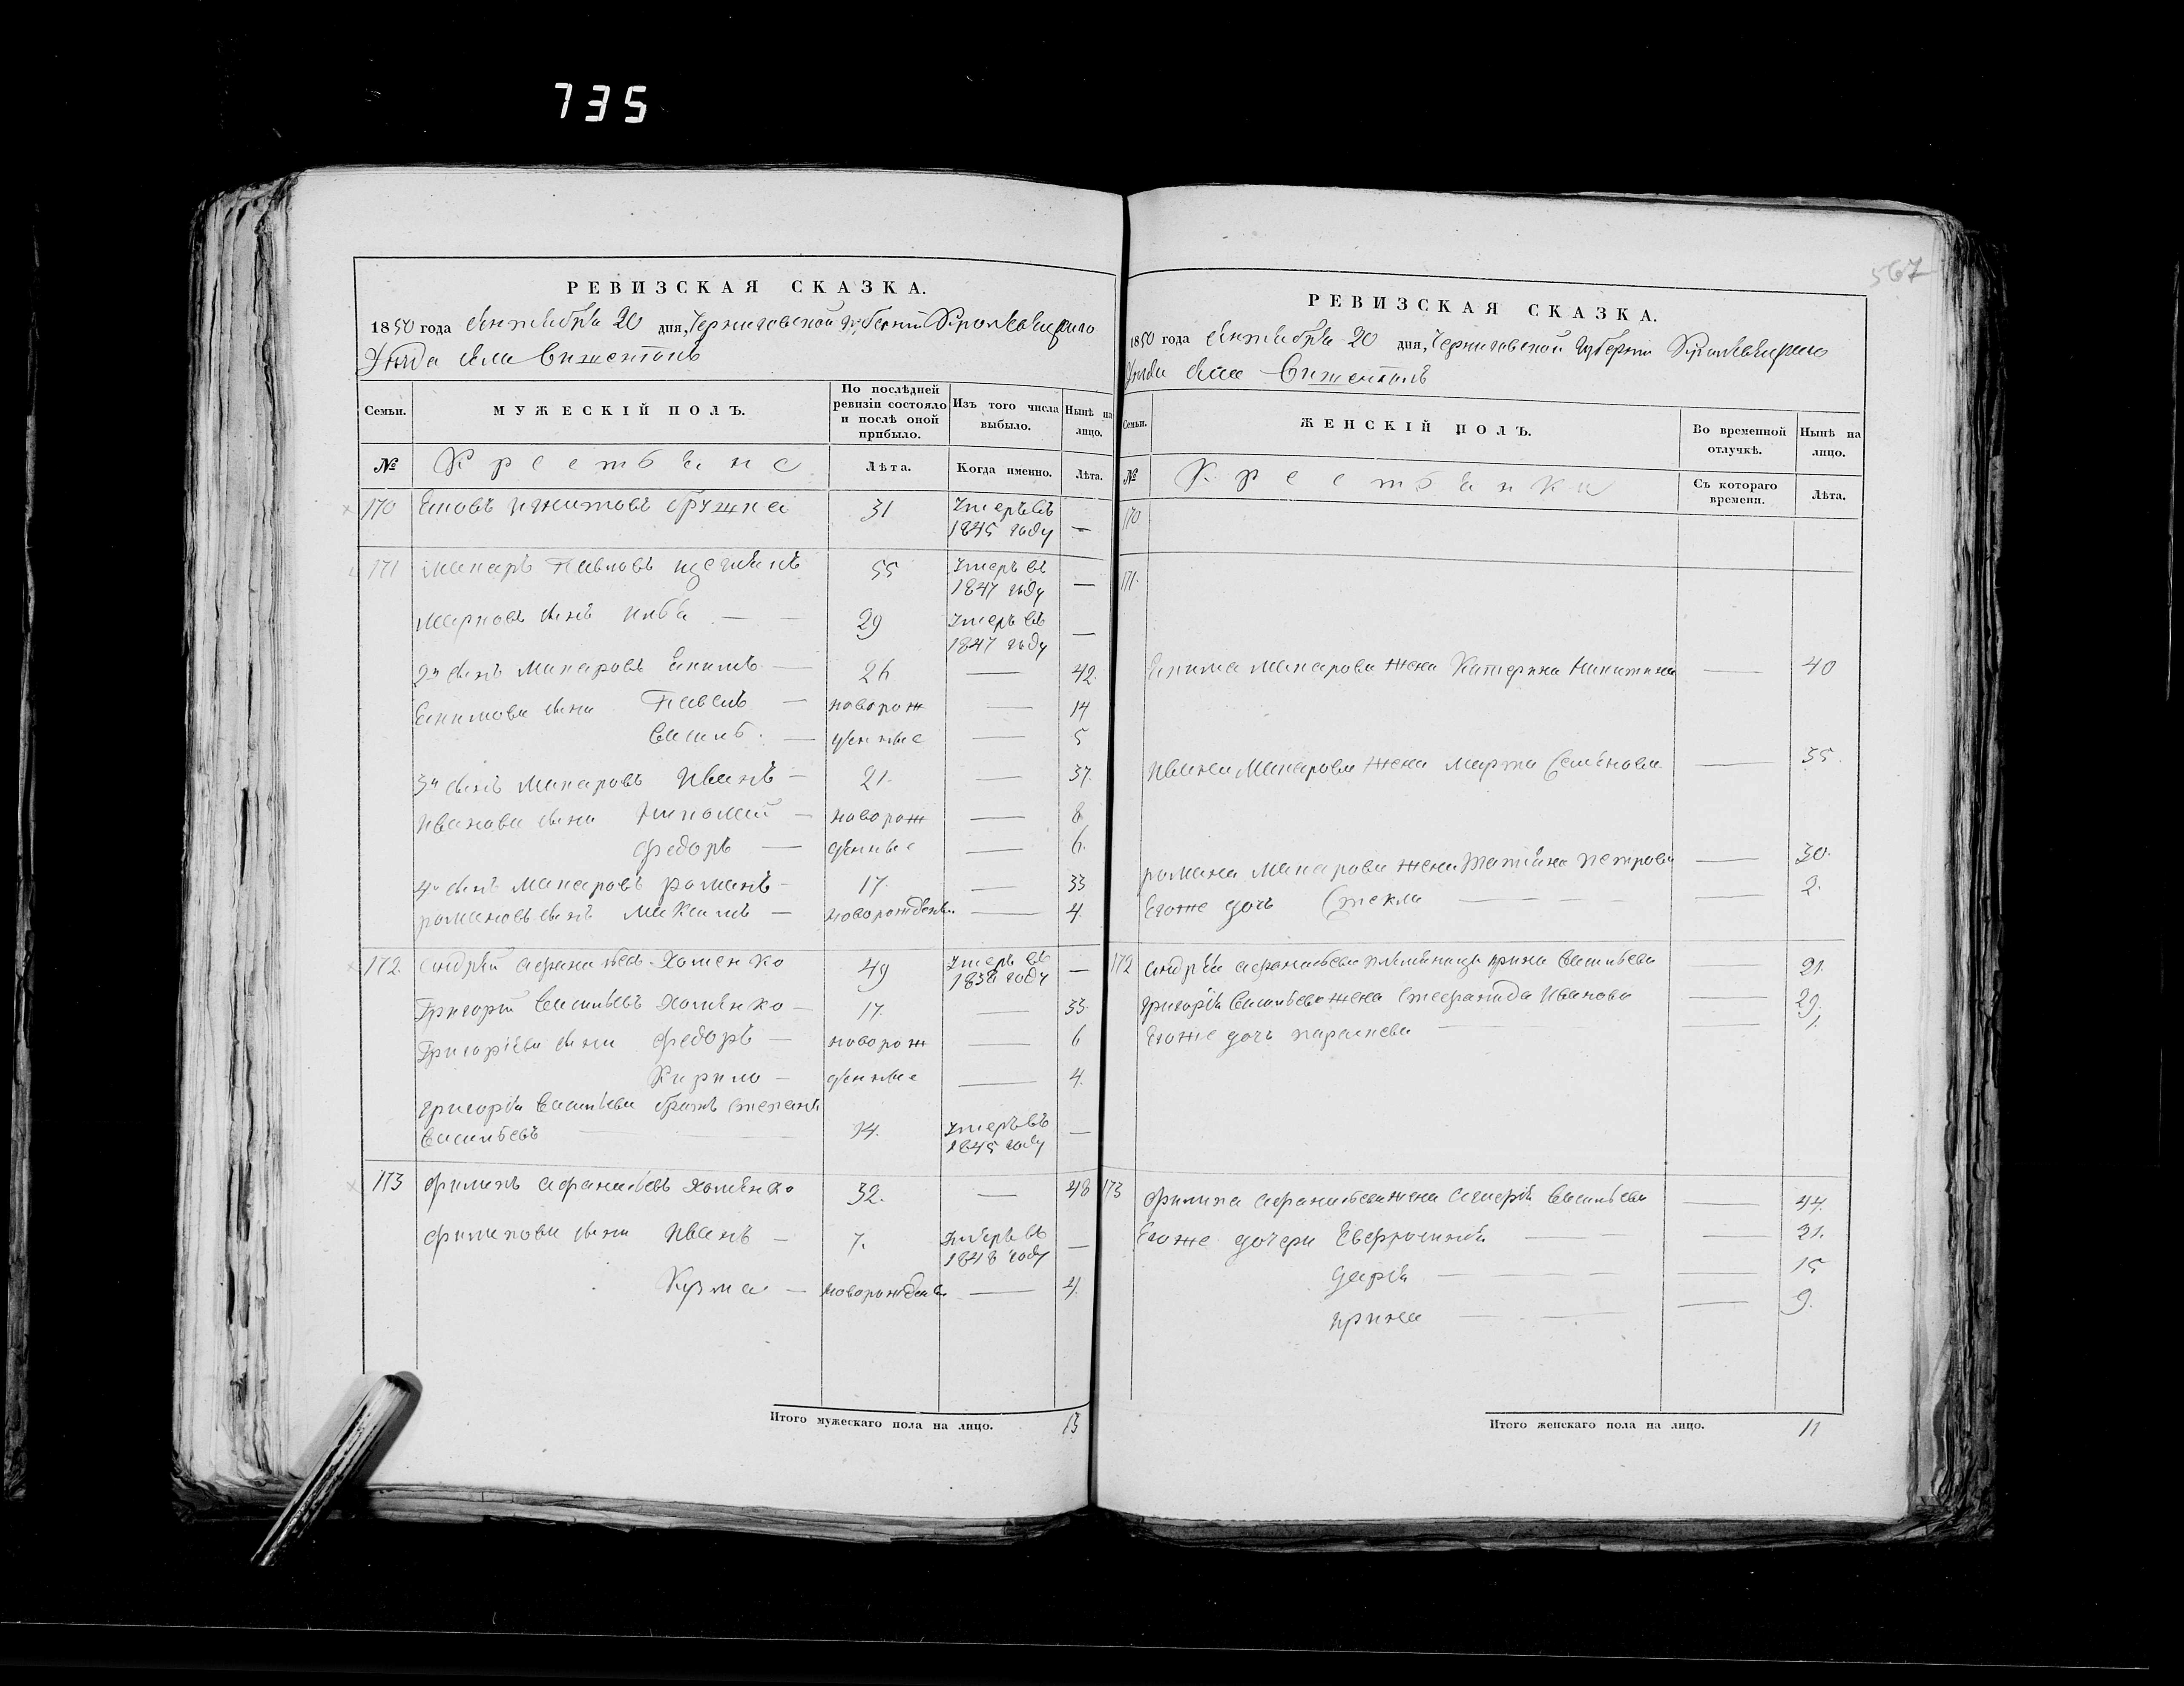 735
567
РЕВИЗСКАЯ СКАЗКА.
1850 года Сентября 20 дня, Черниговской Губернии Кролевецкаго
Уезда села
Семьи. МУЖЕСКІЙ ПОЛЪ. По послѣдней ревизіи состояло и послѣ оной прибыло. Изъ того числа выбыло. Нынѣ на лицо.
№ Крестьяне Лѣта. Когда именно. Лѣта.
170 31 Умеръ въ 1845 году —
171 Макаръ Павловъ 55 Умеръ въ 1847 году —
сынъ 29 Умеръ въ 1847 году —
2й сынъ Макаровъ Екимъ — 26 — 42.
Екимовы сыны Павелъ — новорож — 14
Василь. — денные — 5
3й сынъ Макаровъ Иванъ — 21. — 37.
Ивановы сыны Николай — новорож — 8
Федоръ — денные — 6.
4й сынъ Макаровъ Романъ — 17. — 33
Романовъ сынъ Максимъ — новорожден. — 4.
172. Андрей Афанасьевъ Хоменко 49 Умеръ въ году —
Григорій Васильевъ Хоменко — 17. — 33.
Григорьевы сыны Федоръ — новорож — 6
Кирило — денные — 4.
Григорія Васильева братъ Степанъ
Васильевъ 14. Умеръ въ 1845 году —
173 Филипъ Афанасьевъ Хоменко 32. — 48
Филиповы сыны Иванъ — 7. Умеръ въ 1848 году —
Кузма — новорожден — 4.
Итого мужескаго пола на лицо. 13
РЕВИЗСКАЯ СКАЗКА.
1850 года Сентября 20 дня, Черниговской Губернии Кролевецкаго
Уезда села
Семьи. ЖЕНСКІЙ ПОЛЪ. Во временной отлучкѣ. Нынѣ на лицо.
№ Крестьянки Съ котораго времени. Лѣта.
170
171.
Екима Макарова жена Катерина Никитина — 40
Ивана Макарова жена Марфа Семенова — 35.
Романа Макарова жена Татіана Петрова — 30.
Егоже дочь Фекла — 2.
172 Андрея Афанасьева племяница Ирина Васильева — 21.
Григорія Васильева жена Стефанида Иванова — 29.
Егоже дочь Параскева — 1.
173 Филипа Афанасьева жена Васильева — 44.
Егоже дочери Евфросинія — 21.
Дарія — 15
Ирина — 9.
Итого женскаго пола на лицо. 11